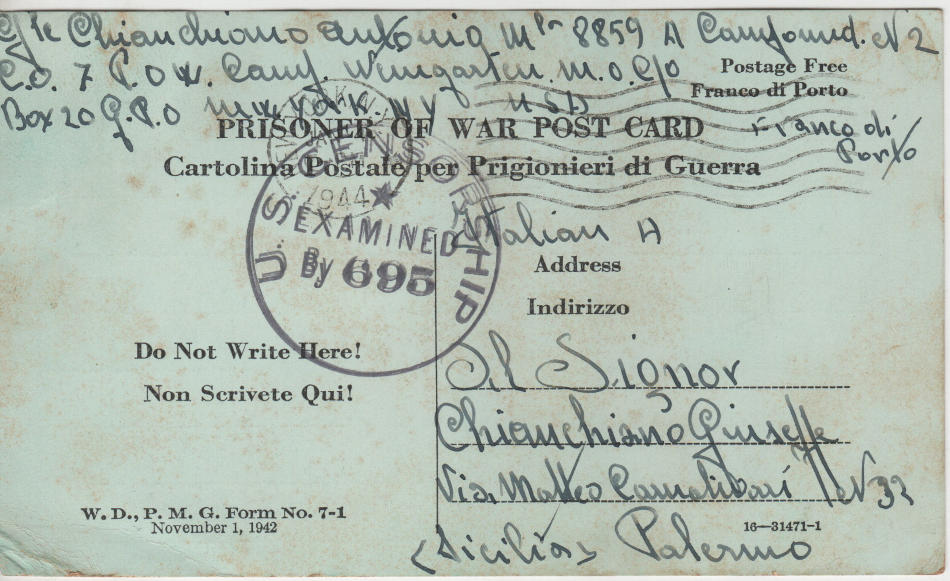 C/le Chianchiano Antonio M/la 8859 A Compound. N 2
C.O. 7 P.O.W. Camp. Weingarten. M.O. C/o
Box 20 G.P.O New York N Y USA
Postage Free
Franco di Porto
PRISONER OF WAR POST CARD
Franco di
Porto
Cartolina Postale per Prigionieri di Guerra
1944
U. S. CENSORSHIP
EXAMINED
By 695
Italian A
Address
Indirizzo
Do Not Write Here!
Non Scrivete Qui!
Il Signor
Chianchiano Giuseppe
Via Matteo N 32
(Sicilia) Palermo
W. D., P. M. G. Form No. 7-1
November 1, 1942
16—31471-1